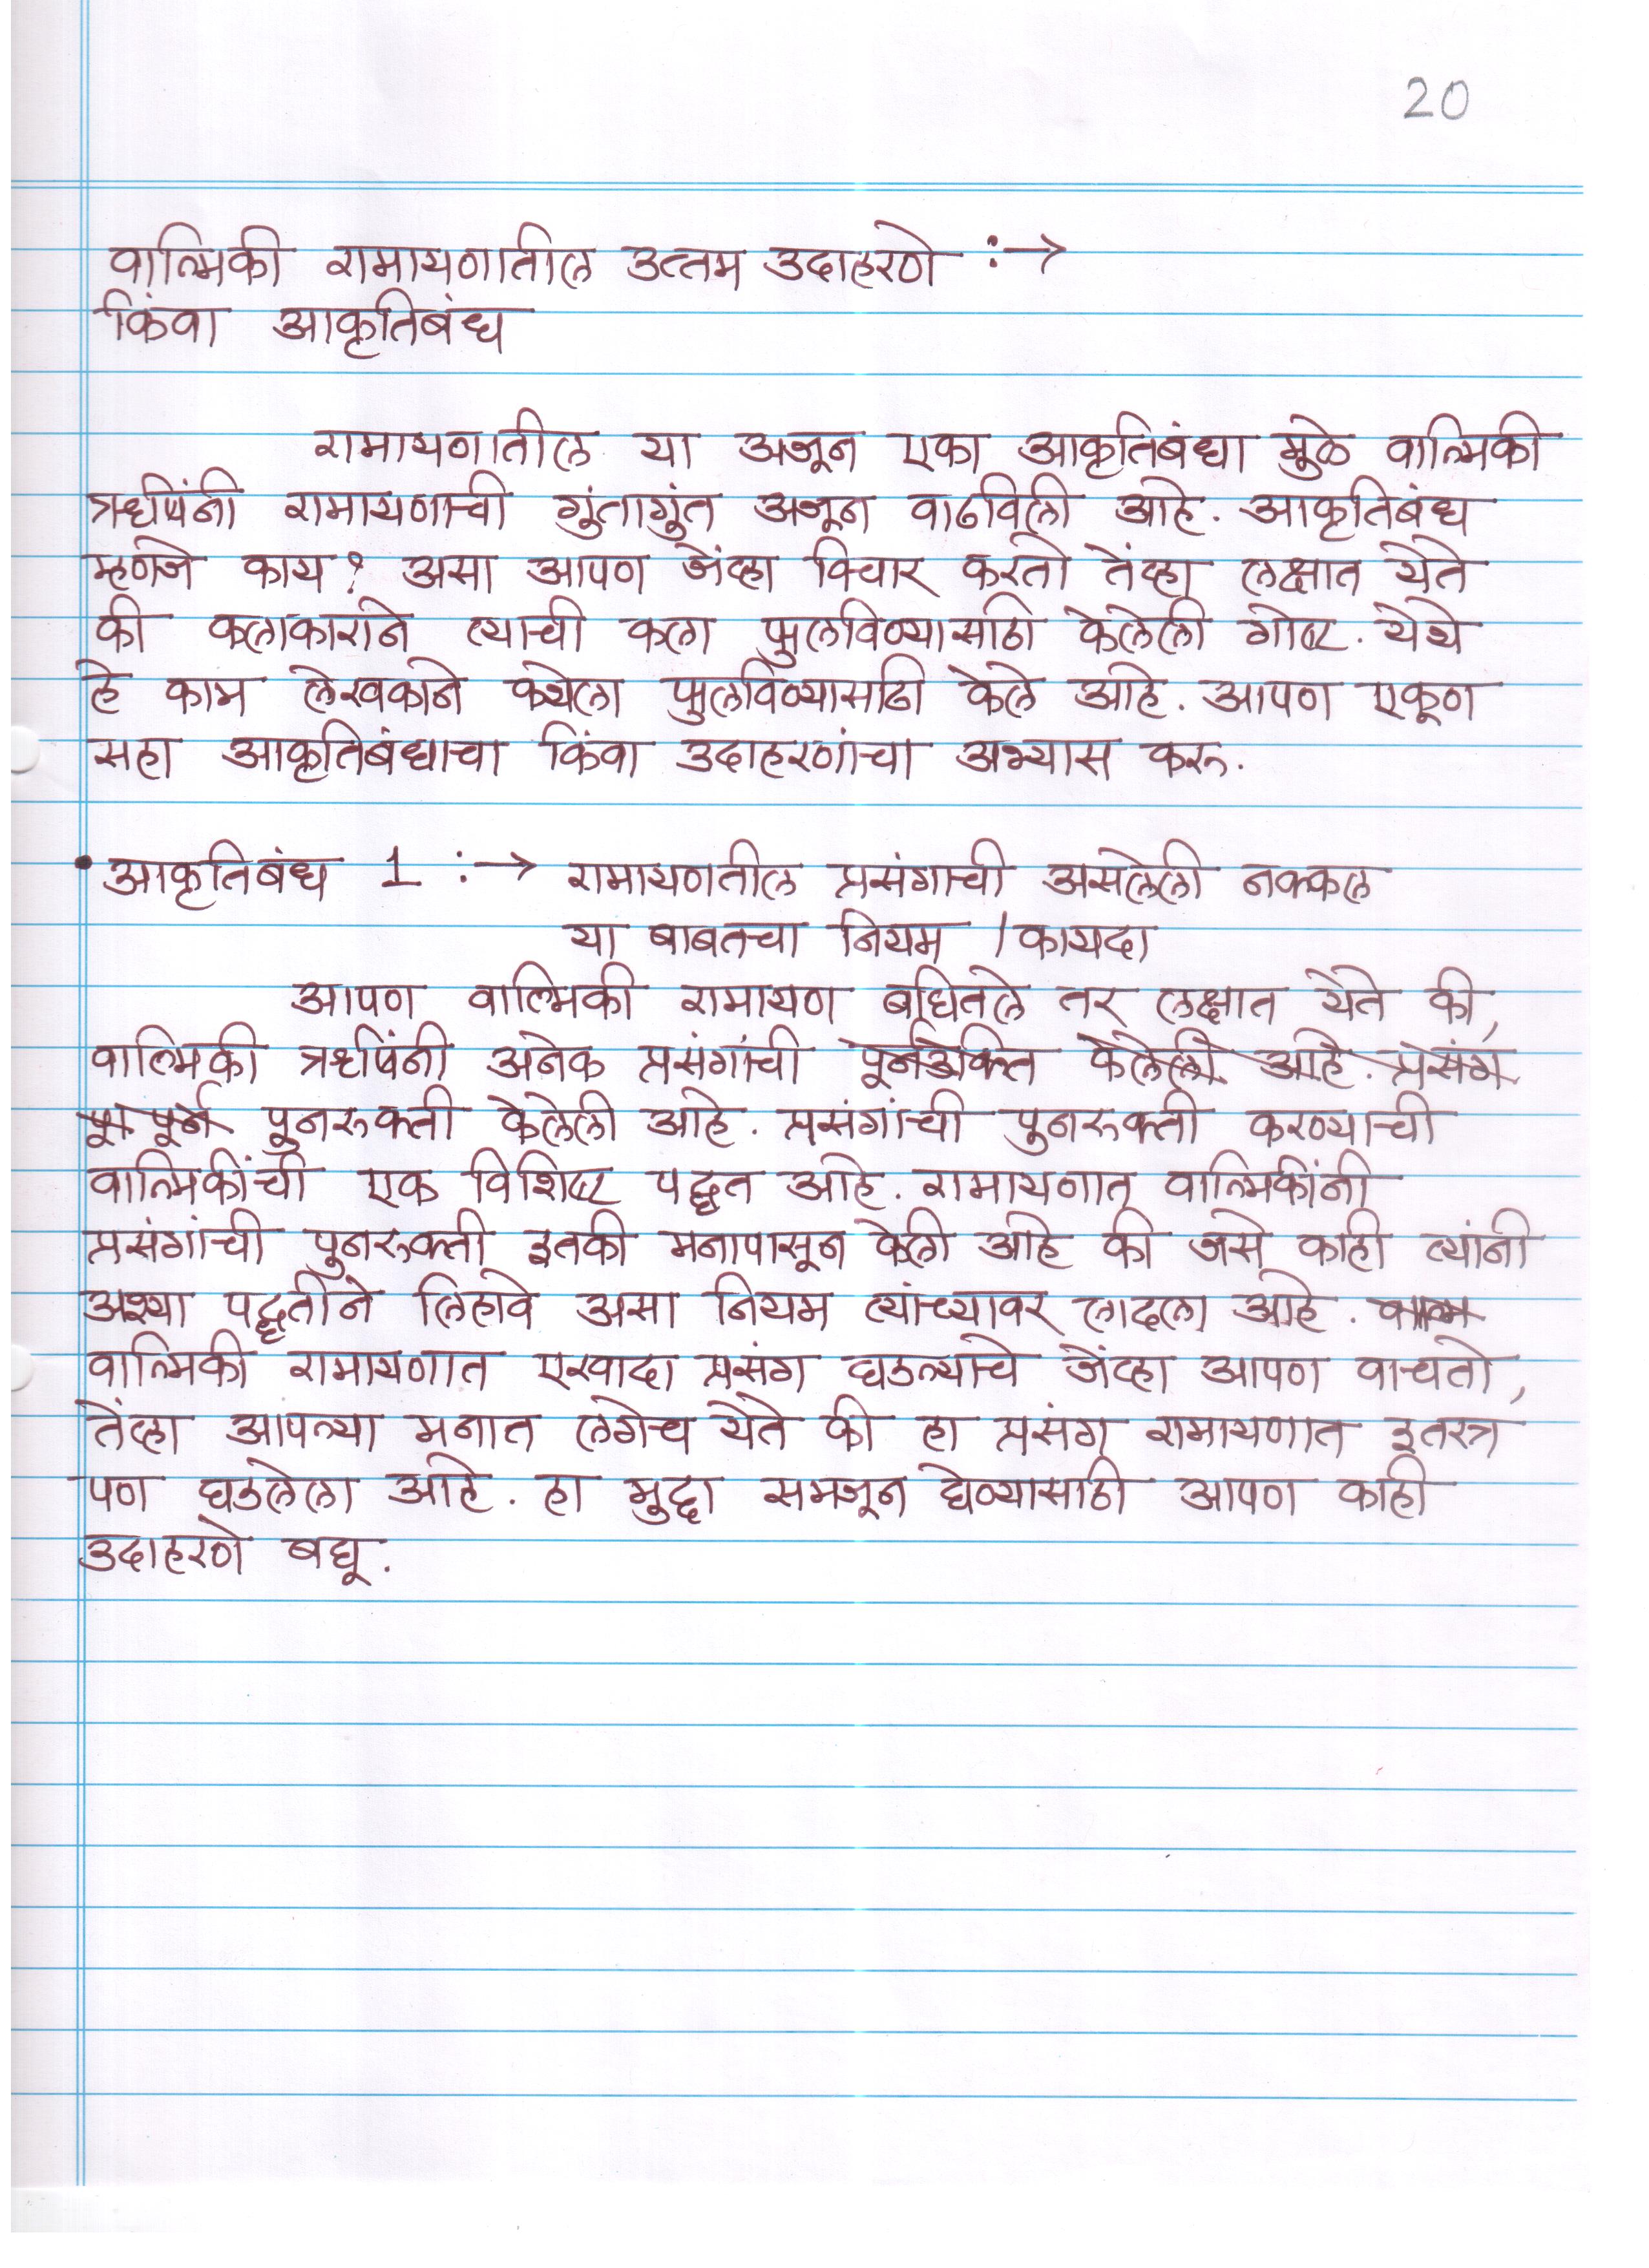 20
वाल्मिकी रामायणातील उत्तम उदाहरणे :→
किंवा आकृतिबंध
रामायणातील या अजून एका आकृतिबंधा मुळे वाल्मिकी
ऋषींनी रामायणाची गुंतागुंत अजून वाढविली आहे. आकृतिबंध
म्हणजे काय? असा आपण जेंव्हा विचार करतो तेंव्हा लक्षात येते
की कलाकाराने त्याची कला फुलविण्यासाठी केलेली गोष्ट. येथे
हे काम लेखकाने कथेला फुलविण्यासाठी केले आहे. आपण एकूण
सहा आकृतिबंधाचा किंवा उदाहरणांचा अभ्यास करू.
• आकृतिबंध 1 :→ रामायणतील प्रसंगाची असलेली नक्कल
या बाबतचा नियम / कायदा
आपण वाल्मिकी रामायण बघितले तर लक्षात येते की,
वाल्मिकी ऋषिंनी अनेक प्रसंगांची पूर्नउक्ति केलेली आहे. प्रसंग
पू पूर्न पुनरूक्ती केलेली आहे. प्रसंगांची पुनरूक्ती करण्याची
वाल्मिकींची एक विशिष्ट पद्धत आहे. रामायणात वाल्मिकींनी
प्रसंगांची पुनरूक्ती इतकी मनापासून केली आहे की जसे काही त्यांनी
अश्या पद्धतीने लिहावे असा नियम त्यांच्यावर लादला आहे. वाल्म
वाल्मिकी रामायणात एखादा प्रसंग घडल्याचे जेंव्हा आपण वाचतो,
तेंव्हा आपल्या मनात लगेच येते की हा प्रसंग रामायणात इतरत्र
पण घडलेला आहे. हा मुद्दा समजून घेण्यासाठी आपण काही
उदाहरणे बघू.